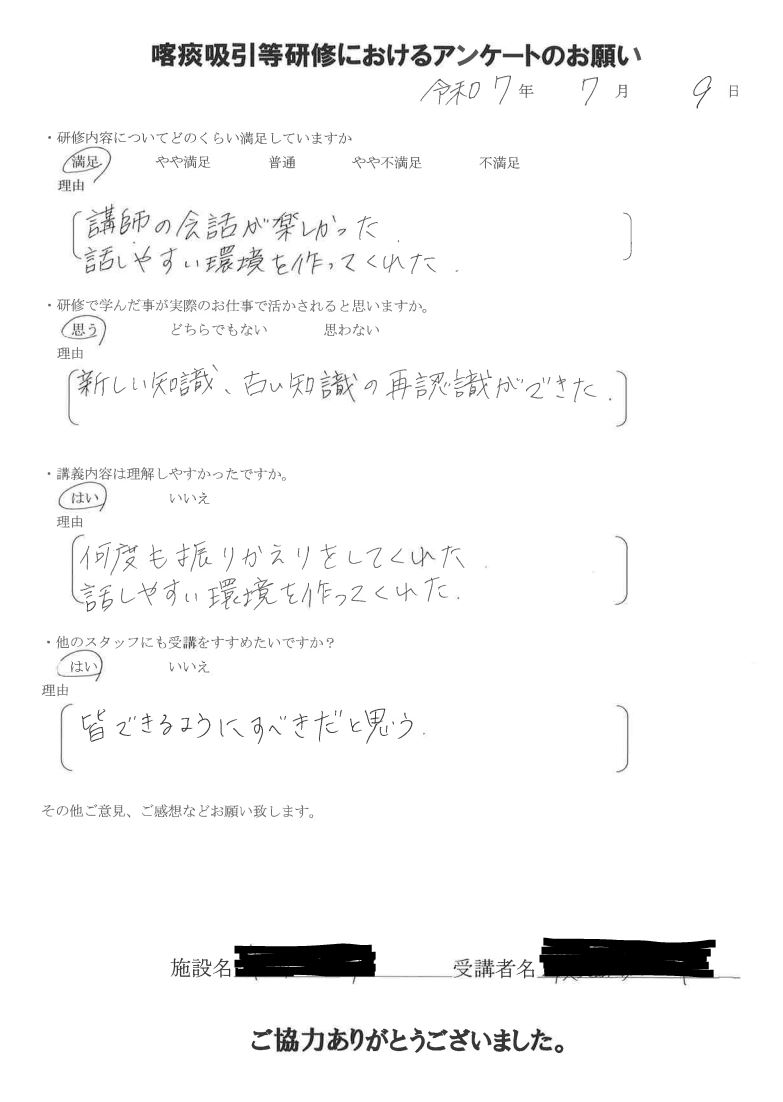 喀痰吸引等研修におけるアンケートのお願い
令和7年 7月 9日
・研修内容についてどのくらい満足していますか
満足 やや満足 普通 やや不満足 不満足
理由
講師の会話が楽しかった.
話しやすい環境を作ってくれた.
・研修で学んだ事が実際のお仕事で活かされると思いますか。
思う どちらでもない 思わない
理由
新しい知識、古い知識の再認識ができた.
・講義内容は理解しやすかったですか。
はい いいえ
理由
何度も振りかえりをしてくれた.
話しやすい環境を作ってくれた.
・他のスタッフにも受講をすすめたいですか?
はい いいえ
理由
皆できるようにすべきだと思う.
その他ご意見、ご感想などお願い致します。
施設名 受講者名
ご協力ありがとうございました。